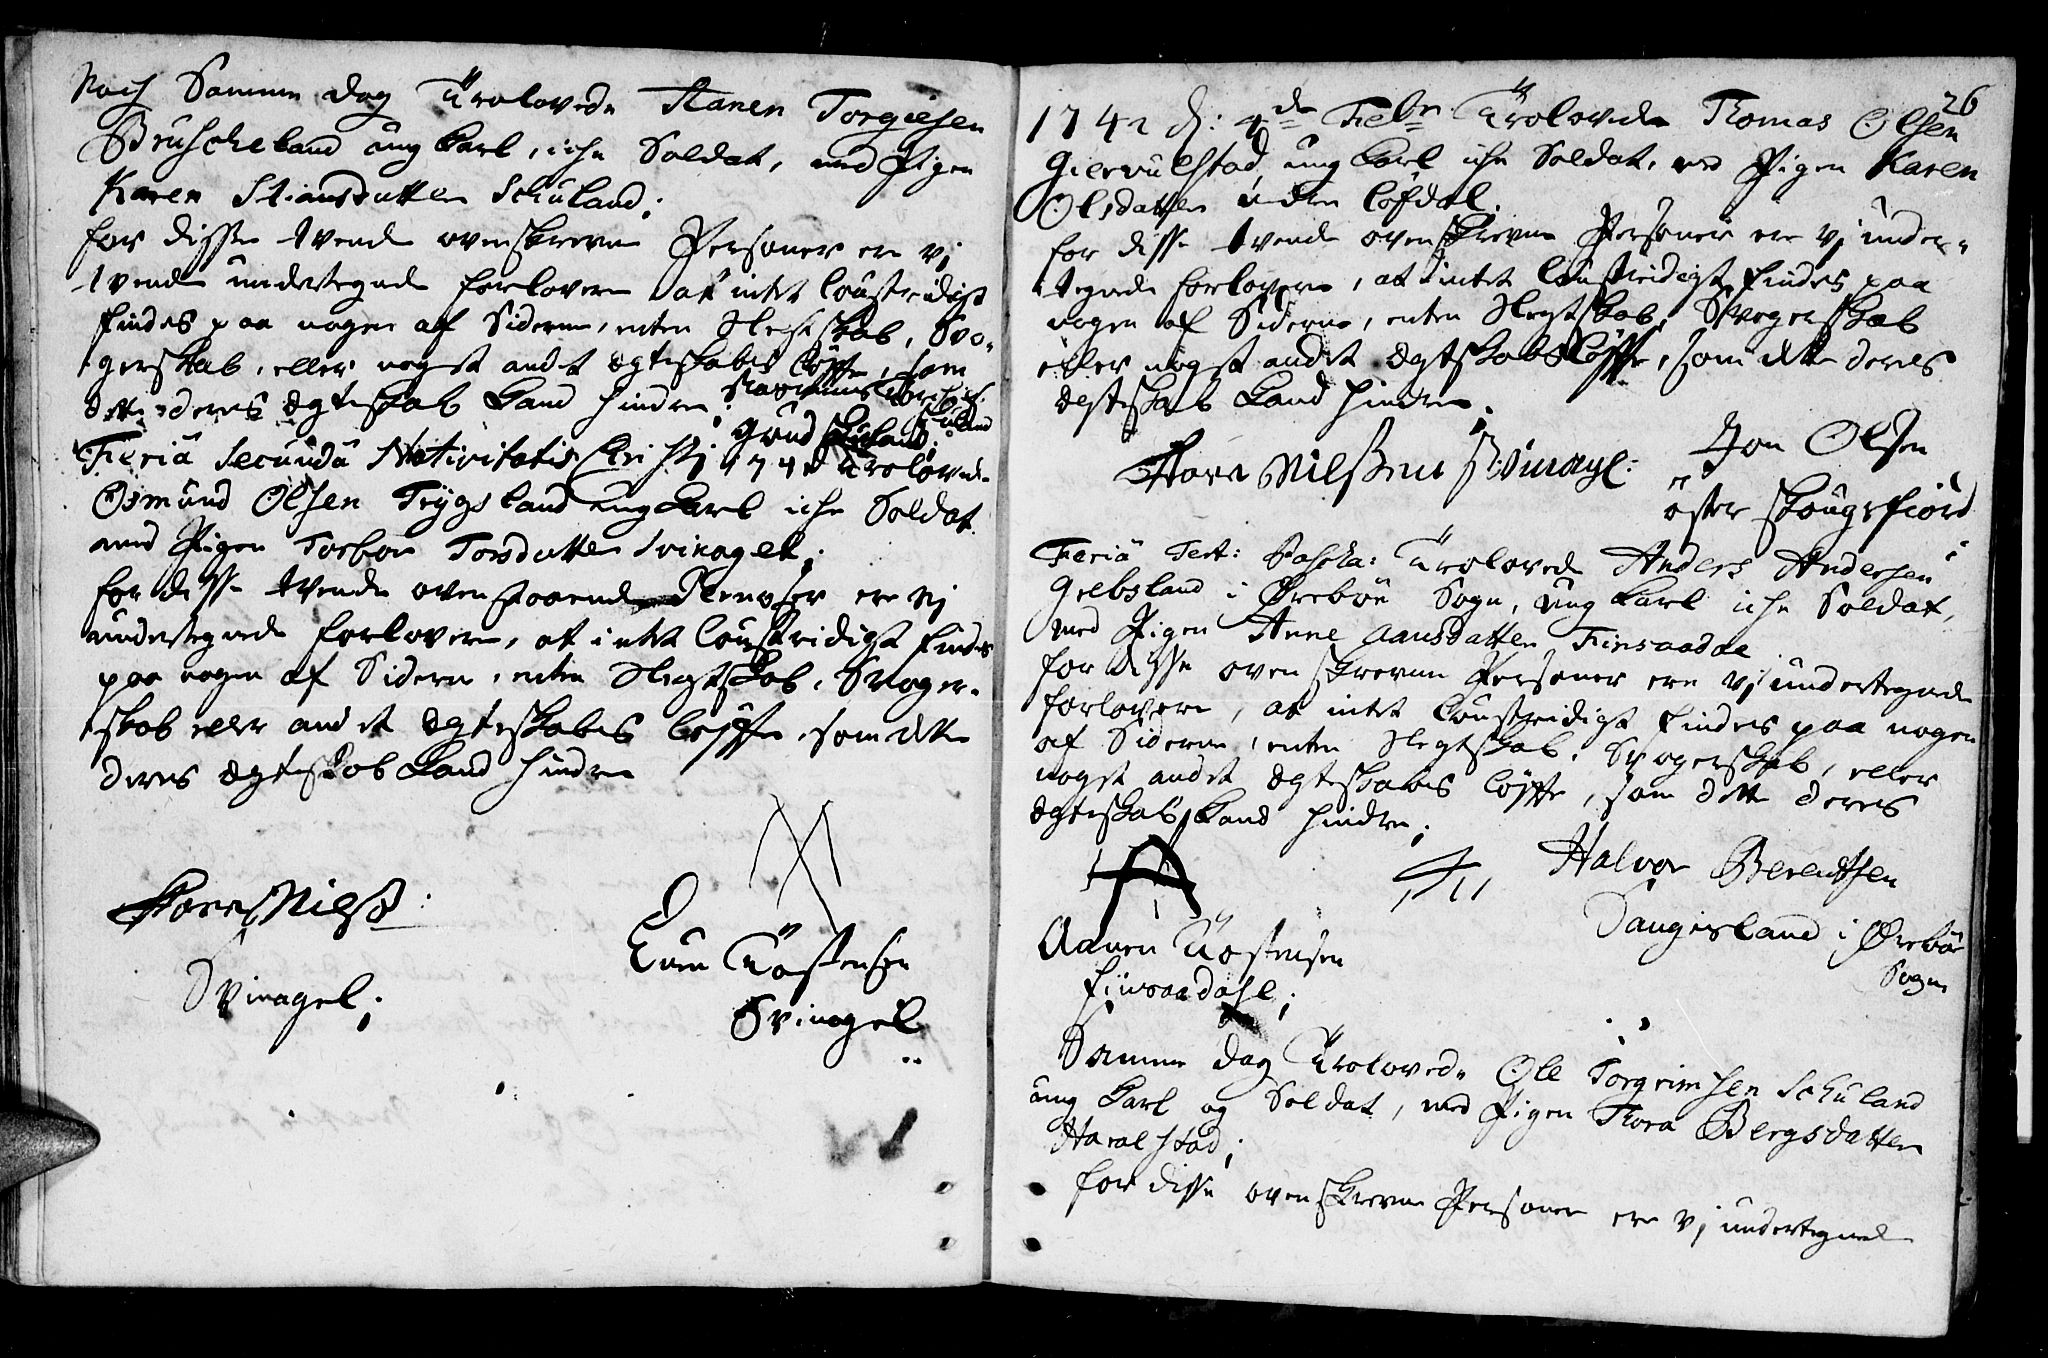 Noch Samme dag Trolovede Aanen Torgiesen
Bruscheland ung Karl, iche Soldat, med Pigen
Karen Stiansdatter Schuland;
for disse tvende ovenskrevne Personer ere vj
tvende undertegnede forlovere at intet loustridigt
findes paa nogen af Siderne, enten Slegtskab, Svo-
gerskab, eller noget andet ægteskabs løffte, som
dette deres Ægteskab Kand hindre.
Schuland
Feriâ Secundâ Nativitatis Christi 1741 Trolovede
Osmund Olsen Trygsland ung Karl iche Soldat
med Pigen Torbor Torsdatter Svinagel;
for disse tvende ovenstaaende Personer ere vj
undertegnede forlovere, at intet loustridigt findes
paa nogen af Siderne, enten Slegtskab, Svoger-
skab eller andet Ægteskabs løffte, som dette
deres Ægteskab Kand hindre
Tore Nilss:
Svinagel;
Even Tostensen
Svinagel
26
1742 d: 4de Febr Trolovede Thomas Olsen
Giervulstad, ung Karl iche Soldat, med Pigen Karen
Olsdatter Løfdal.
for disse tvende ovenskrevne Personer ere vj under-
tegnede forlovere, at intet loustridigt findes paa
nogen af Siderne, enten Slegtskab, Svogerskab
eller noget andet Ægteskabs løffte, som dette deres
Ægteskab Kand hindre.
Tore Nilssen Svinagel:
Jon Olsen
öster skougsfiord
Feriâ Tert: Pascha: Trolovede Anders Andersen
Gelbsland i Øreböe Sogn, ung Karl iche Soldat,
med Pigen Anne Aansdatter Finsaadal
for disse ovenskrevne Personer ere vj undertegnede
forlovere, at intet loustridigt findes paa nogen
af Siderne, enten Slegtskab, Svogerskab, eller
noget andet Ægteskabs løffte, som dette deres
Ægteskab Kand hindre;
Halvor Berentsen
Daugisland i Ørebøe
Sogn
Aanen Tostensen
Finsaadahl;
Samme dag Trolovede Ole Torgrimsen Schuland
ung Karl og Soldat, med Pigen Thora Bergsdatter
Haralstad;
for disse ovenskrevne Personer ere vj undertegnede